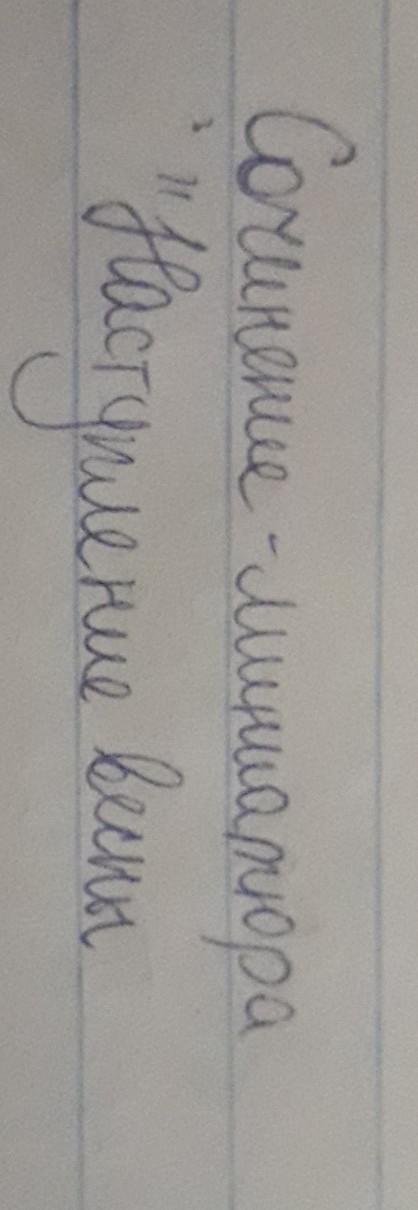 Сочинение - миниатюра
"Наступление весны